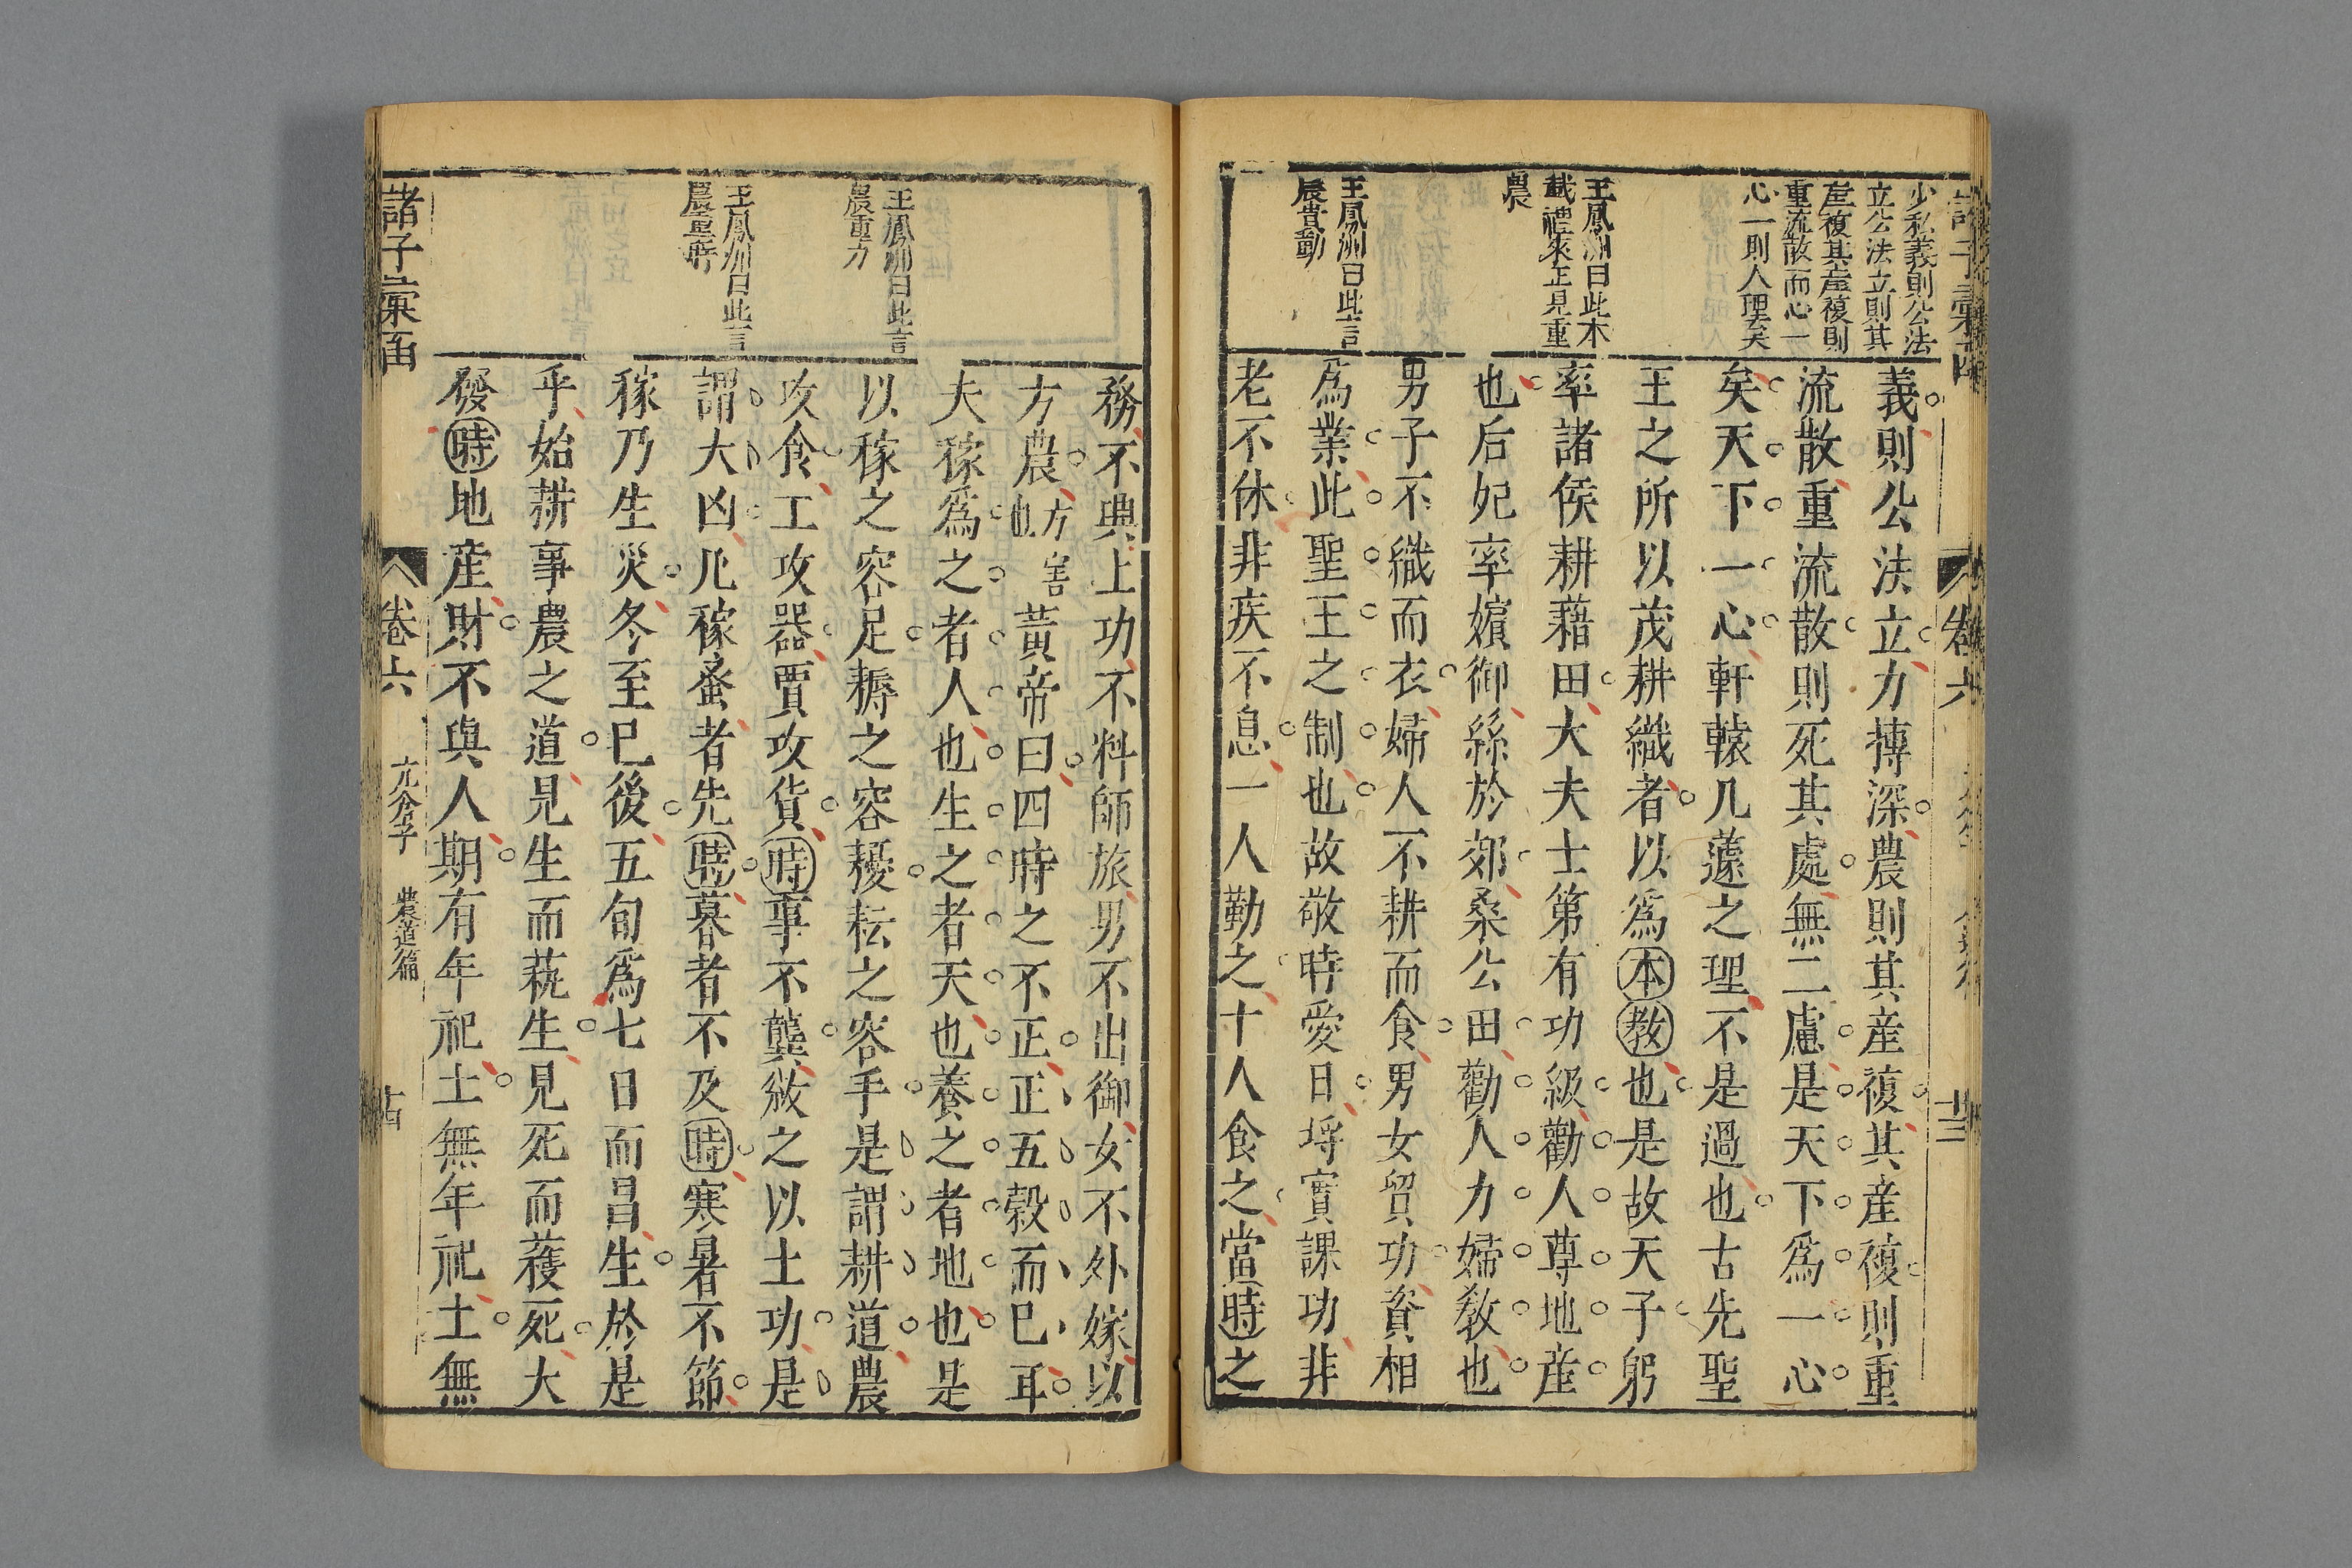 少私義則公法
立公法立則其
產複其產複則
重流散而心一
心一則人理矣
王鳳洲曰此本
戴禮來正見重
農
王鳳洲曰此言
農貴勤
義則公法立力摶深農則其產複其產複則重
流散重流散則死其處無二慮是天下為一心
矣天下一心軒轅几蘧之理不是過也古先聖
王之所以茂耕織者以爲本教也是故天子躬
率諸侯耕藉田大夫士第有功級勸人尊地產
也后妃率嬪御絲於郊桑公田勸人力婦教也
男子不織而衣婦人不耕而食男女貿功資相
爲業此聖王之制也故敬時愛日埒實課功非
老不休非疾不息一人勤之十人食之當時之
王鳳洲曰此言
農重力
王鳳洲曰此言
農重時
務不典上功不料師旅男不出御女不外嫁以
方農方害也黃帝曰四時之不正正五穀而已耳
夫稼爲之者人也生之者天也養之者地也是
以稼之容足耨之容耰耘之容手是謂耕道農
攻食工攻器賈攻貨時事不龔敚之以土功是
謂大凶凡稼蚤者先時暮者不及時寒暑不節
稼乃生災冬至已後五旬爲七日而昌生於是
乎始耕事農之道見生而蓺生見死而穫死大
發時地產財不與人期有年祀土無年祀土無
諸子彙函
卷六
亢倉子
農道篇
十四